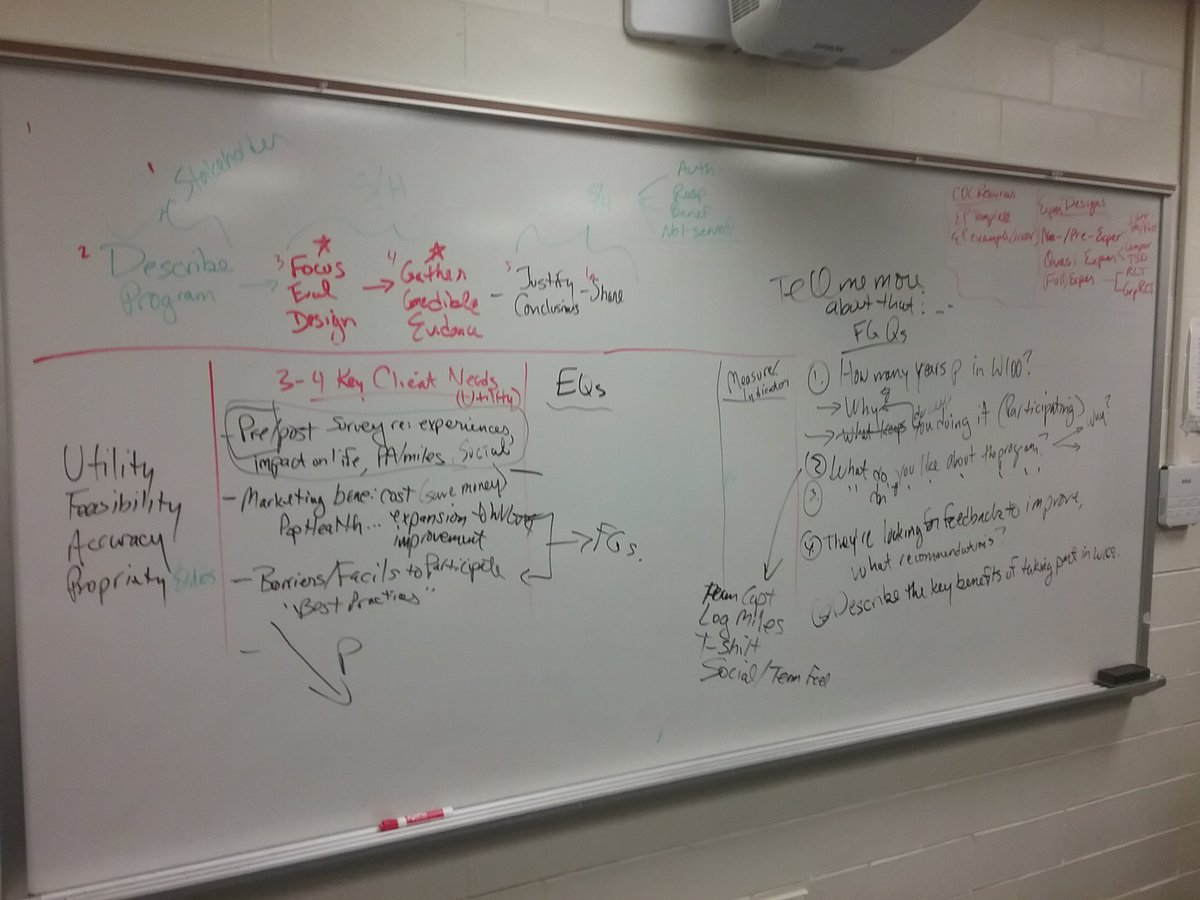 1
Stakeholder
C/H
S/H
Auth
Resp
Benef
Not served
2 Describe
Program
3 Focus
Eval
Design
4 Gather
Credible
Evidence
5 Justify
Conclusions
6 Share
CDC Resources
EP template
Experi Designs
Non-/Pre-Exper
Quasi Exper
(Full) Exper
Compar
TSD
RCT
GrpRCT
Tell me more
about that: ...
Utility
Feasibility
Accuracy
Propriety Ethics
3-4 Key Client Needs
(Utility)
- Pre/post survey re: experiences,
impact on life, PA/miles, Social
- Marketing bene: cost (save money)
Pop Health... expansion
improvement
- Barriers/Facils to Participate
"Best Practices"
-
P
EQs
FGs.
Measure/
Indicator
FGQs
1. How many years p in W100?
→ Why?
→ What keeps you doing it (Participating)
2 What do you like about the program? → why?
3 " don't " " " " "
4 They're looking for feedback to improve,
what recommendations?
5 Describe the key benefits of taking part in W100.
Team Capt
Log Miles
T-shirt
Social/Team Feel
EPSON